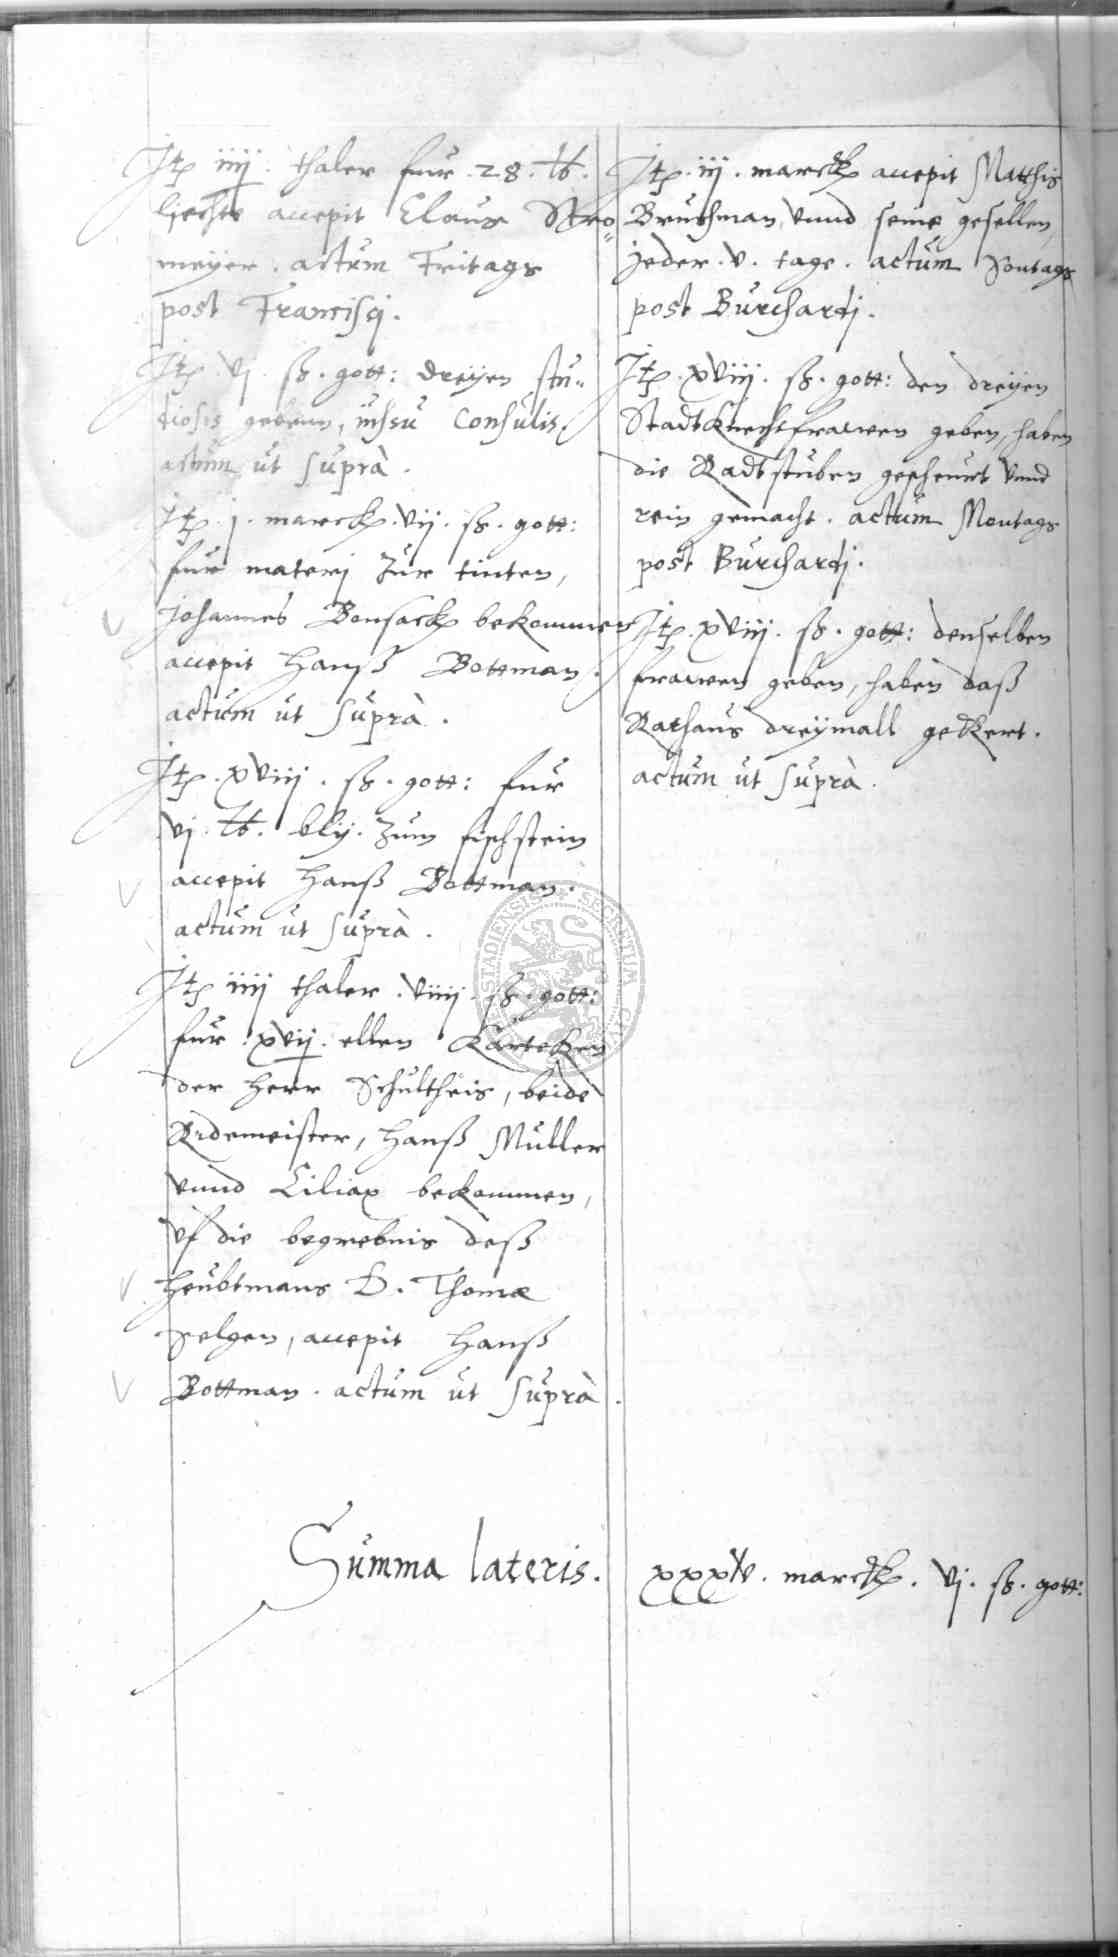 Itp iiij. thaler fur .28. tb.
liecht accepit Claus Stro-
meÿer. actum Freitags
post Francisci.
Itp. vj. sß. gott: dreÿen stu-
diosis gebenn, iussu Consulis,
actum ut suprà.
Itp. j. marck. vij. sß. gott:
fur materj Zur tinten,
Johannes Bonsack bekommen
accepit Hanß Bottman.
actum ut suprà.
Itp. xviij. sß. gott: fur
vj. tb. blij. Zum fischstein
accepit Hanß Bottman.
actum ut suprà.
Itp iiij thaler. viiij. sß. gott:
fur. xvij. ellen Karteken
der Herr Schultheis, beide
Ridemeister, Hanß Muller
vnnd Ciliax bekommen,
vf die begrebnis deß
Heubtmans D. Thomæ
Selgen, accepit Hanß
Bottman. actum ut suprà.
Itp. iij. marck accepit Matthis
Bruchman, vnnd seine gesellen,
jeder. v. tage. actum Sontags
post Burchardj.
Itp. xviij. sß. gott: den dreÿen
Stadtknechtfrawen geben, haben
die Radtstuben gescheurt vnnd
rein gemacht. actum Montags
post Burchardj.
Itp. xviij. sß. gott: denselben
frawen geben, haben daß
Rathaus dreÿmall gekert.
actum ut suprà.
Summa lateris. xxxiv. marck. vj. sß. gott:
SECRETUM